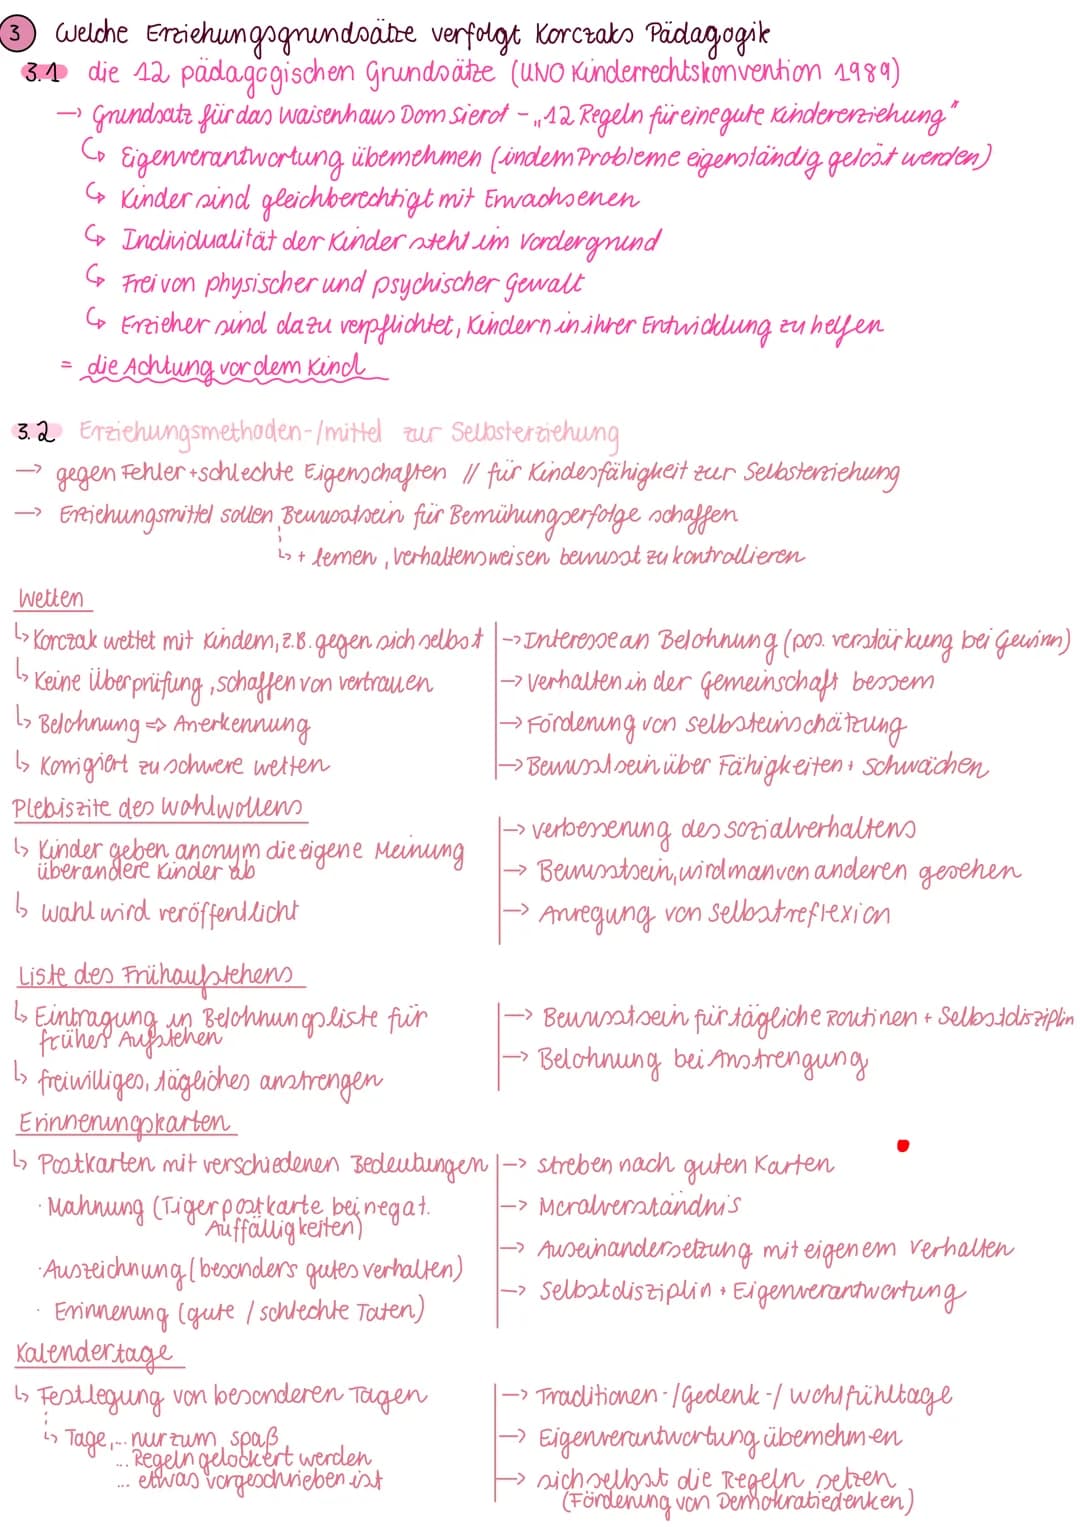 3 Welche Erziehungsgrundsätze verfolgt Korczaks Pädagogik
3.1 die 12 pädagogischen Grundsätze (UNO Kinderrechtskonvention 1989)
→ Grundsatz für das Waisenhaus Dom Sierot - „12 Regeln für eine gute Kindererziehung"
↳ Eigenverantwortung übernehmen (indem Probleme eigenständig gelöst werden)
↳ Kinder sind gleichberechtigt mit Erwachsenen
↳ Individualität der Kinder steht im Vordergrund
↳ Frei von physischer und psychischer Gewalt
↳ Erzieher sind dazu verpflichtet, Kindern in ihrer Entwicklung zu helfen
= die Achtung vor dem Kind
3.2 Erziehungsmethoden-/mittel zur Selbsterziehung
→ gegen Fehler + schlechte Eigenschaften // für Kindesfähigkeit zur Selbsterziehung
→ Erziehungsmittel sollen Bewusstsein für Bemühungserfolge schaffen
↳ + lernen, Verhaltensweisen bewusst zu kontrollieren
Wetten
↳ Korczak wettet mit Kindern, z.B. gegen sich selbst
↳ Keine Überprüfung, schaffen von vertrauen
↳ Belohnung ⇒ Anerkennung
↳ Korrigiert zu schwere wetten
→ Interesse an Belohnung (pos. verstärkung bei Gewinn)
→ Verhalten in der Gemeinschaft bessern
→ Förderung von selbsteinschätzung
→ Bewusstsein über Fähigkeiten + Schwächen
Plebiszite des Wohlwollens
↳ Kinder geben anonym die eigene Meinung
über andere Kinder ab
↳ Wahl wird veröffentlicht
→ verbesserung des sozialverhaltens
→ Bewusstsein, wird man von anderen gesehen
→ Anregung von Selbstreflexion
Liste des Frühaufstehens
↳ Eintragung in Belohnungsliste für
frühes Aufstehen
↳ freiwilliges, tägliches anstrengen
→ Bewusstsein für tägliche Routinen + Selbstdisziplin
→ Belohnung bei Anstrengung
Erinnerungskarten
↳ Postkarten mit verschiedenen Bedeutungen
· Mahnung (Tigerpostkarte bei negat.
Auffälligkeiten)
· Auszeichnung (besonders gutes verhalten)
· Erinnerung (gute / schlechte Taten)
→ streben nach guten Karten
→ Moralverständnis
→ Auseinandersetzung mit eigenem Verhalten
→ Selbstdisziplin + Eigenverantwortung
Kalendertage
↳ Festlegung von besonderen Tagen
↳ Tage,... nur zum spaß
... Regeln gelockert werden
... etwas vorgeschrieben ist
→ Traditionen-/Gedenk-/ Wohlfühltage
→ Eigenverantwortung übernehmen
→ sich selbst die Regeln setzen
(Förderung von Demokratiedenken)